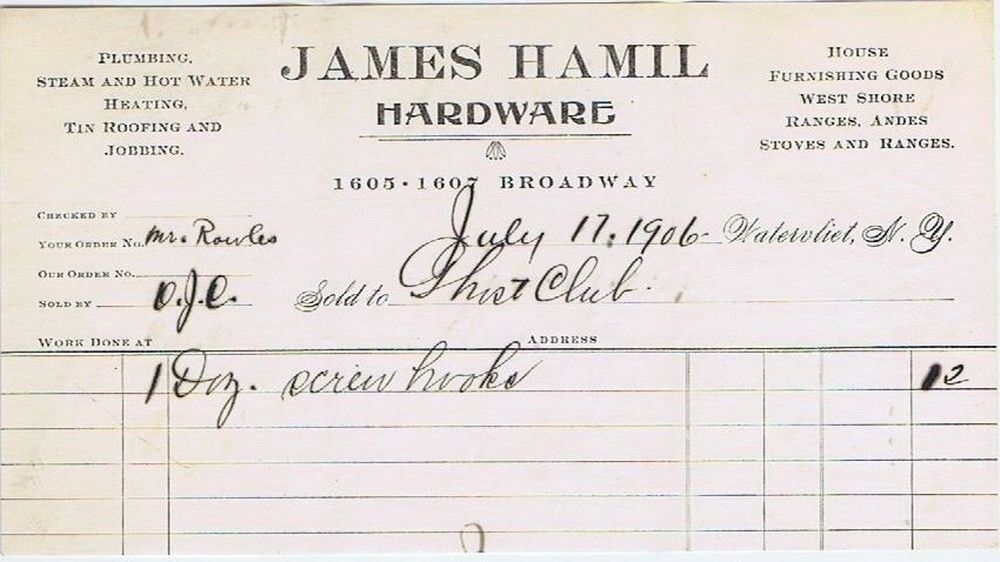 PLUMBING,
STEAM AND HOT WATER
HEATING,
TIN ROOFING AND
JOBBING.
JAMES HAMIL
HARDWARE
1605 · 1607 BROADWAY
HOUSE
FURNISHING GOODS
WEST SHORE
RANGES, ANDES
STOVES AND RANGES.
CHECKED BY
July 17. 1906 Watervliet, N. Y.
YOUR ORDER NO. Mr. Rowles
OUR ORDER NO.
SOLD BY O.J.C. Sold to Club.
WORK DONE AT ADDRESS
1 Doz. screw hooks 12